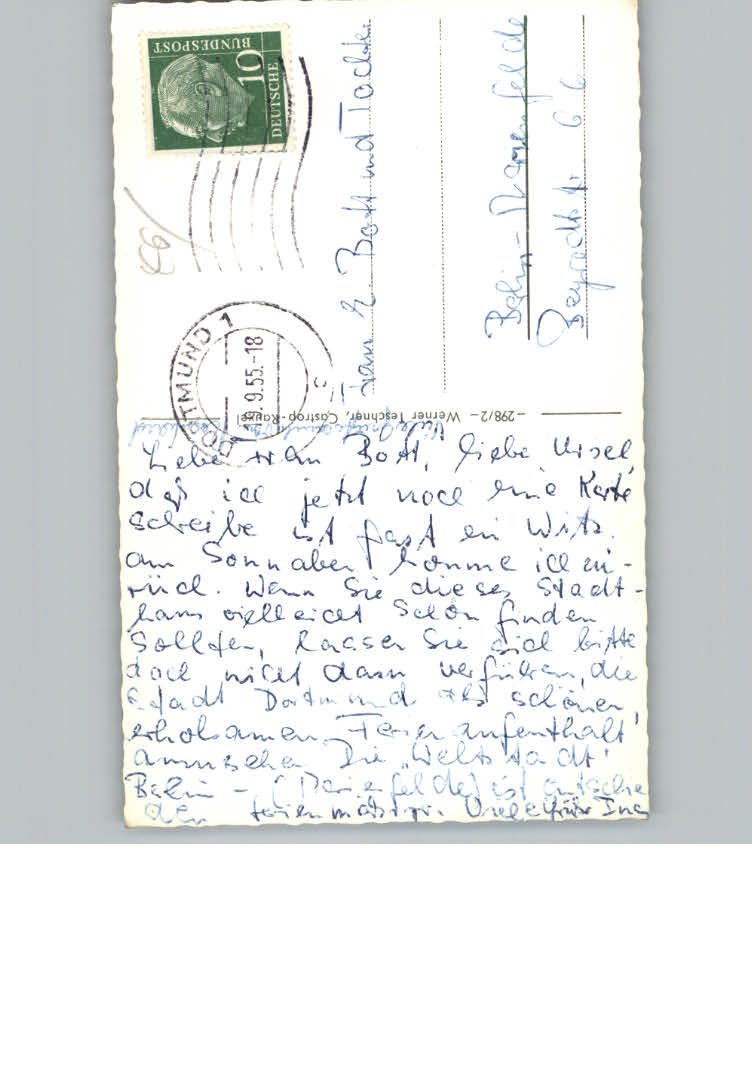 DEUTSCHE
BUNDESPOST
10
DORTMUND 1
9.55.-18
c
Frau E. Bott und Tochter
Berlin - Marienfelde
66
–298/2– Werner Teschner, Castrop-Rauxel
Liebe Frau Bott, liebe Ursel,
daß ich jetzt noch eine Karte
schreibe ist fast ein Witz.
am Sonnabend komme ich zu-
rück. Wenn Sie dieses Stadt-
haus vielleicht schön finden
sollten, lassen Sie sich bitte
doch nicht dazu verführen, die
Stadt Dortmund als schönen,
erholsamen Ferienaufenthalt
anzusehen. Die „Weltstadt"
Berlin - (Marienfelde) ist entschie
den ferienmäßiger. Viele Grüße